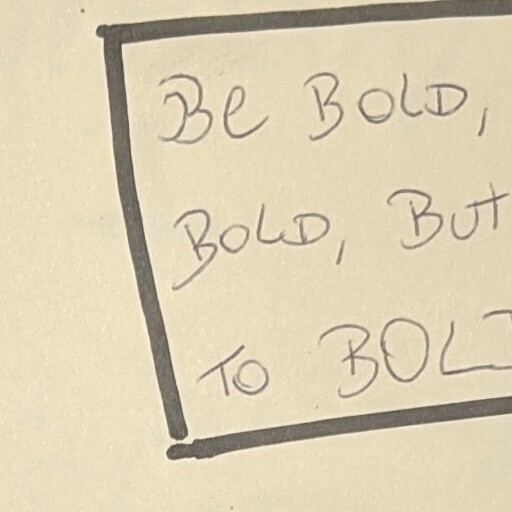 Be BOLD,
BOLD, BUT
TO BOL